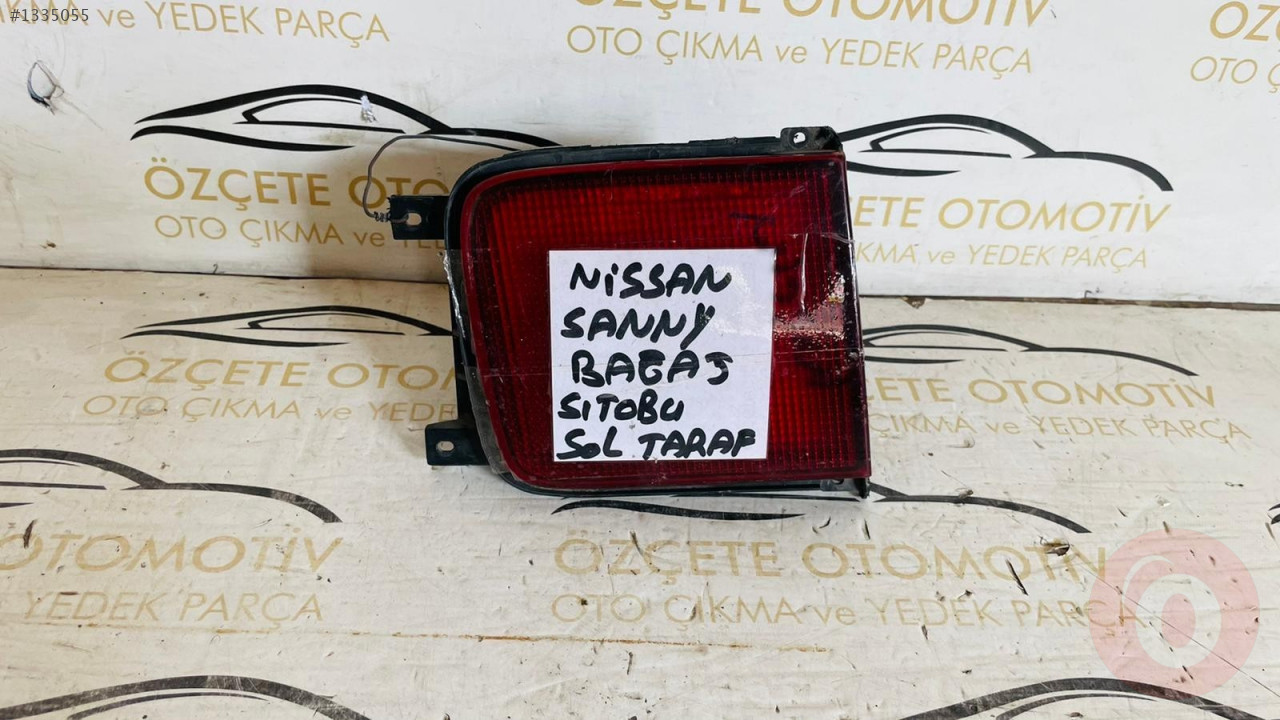 #1335055
ÖZÇETE OTOMOTİV
PARÇA
OTO ÇIKMA ve YEDEK PARÇA
OTO Ç
ÖZÇETE OTO
OTO ÇIKMA ve
ETE OTOMOTİV
ÇIKMA ve YEDEK PARÇA
NiSSAN
SANNY
BAGAJ
SITOBU
SOL TARAF
ÖZÇETE OTOMO
OTO ÇIKMA ve YEDE
ÇETE OTOMOTİV
ÇIKMA ve YEDEK PARÇA
OTOMOTİV
YEDEK PARÇA
ÖZÇETE OTOMOTİV
OTO ÇIKMA ve YEDEK PARÇA